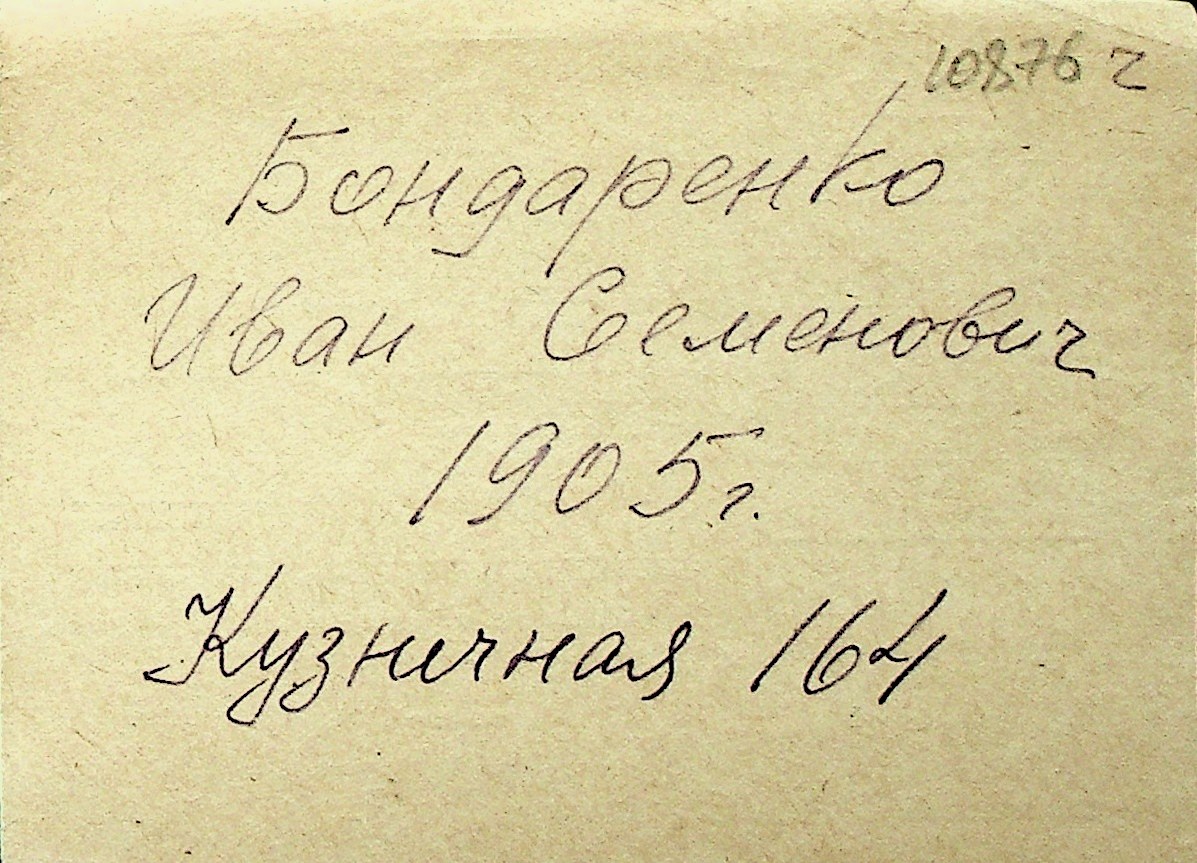 10876 г
Бондаренко
Иван Семенович
1905г.
Кузничная 164